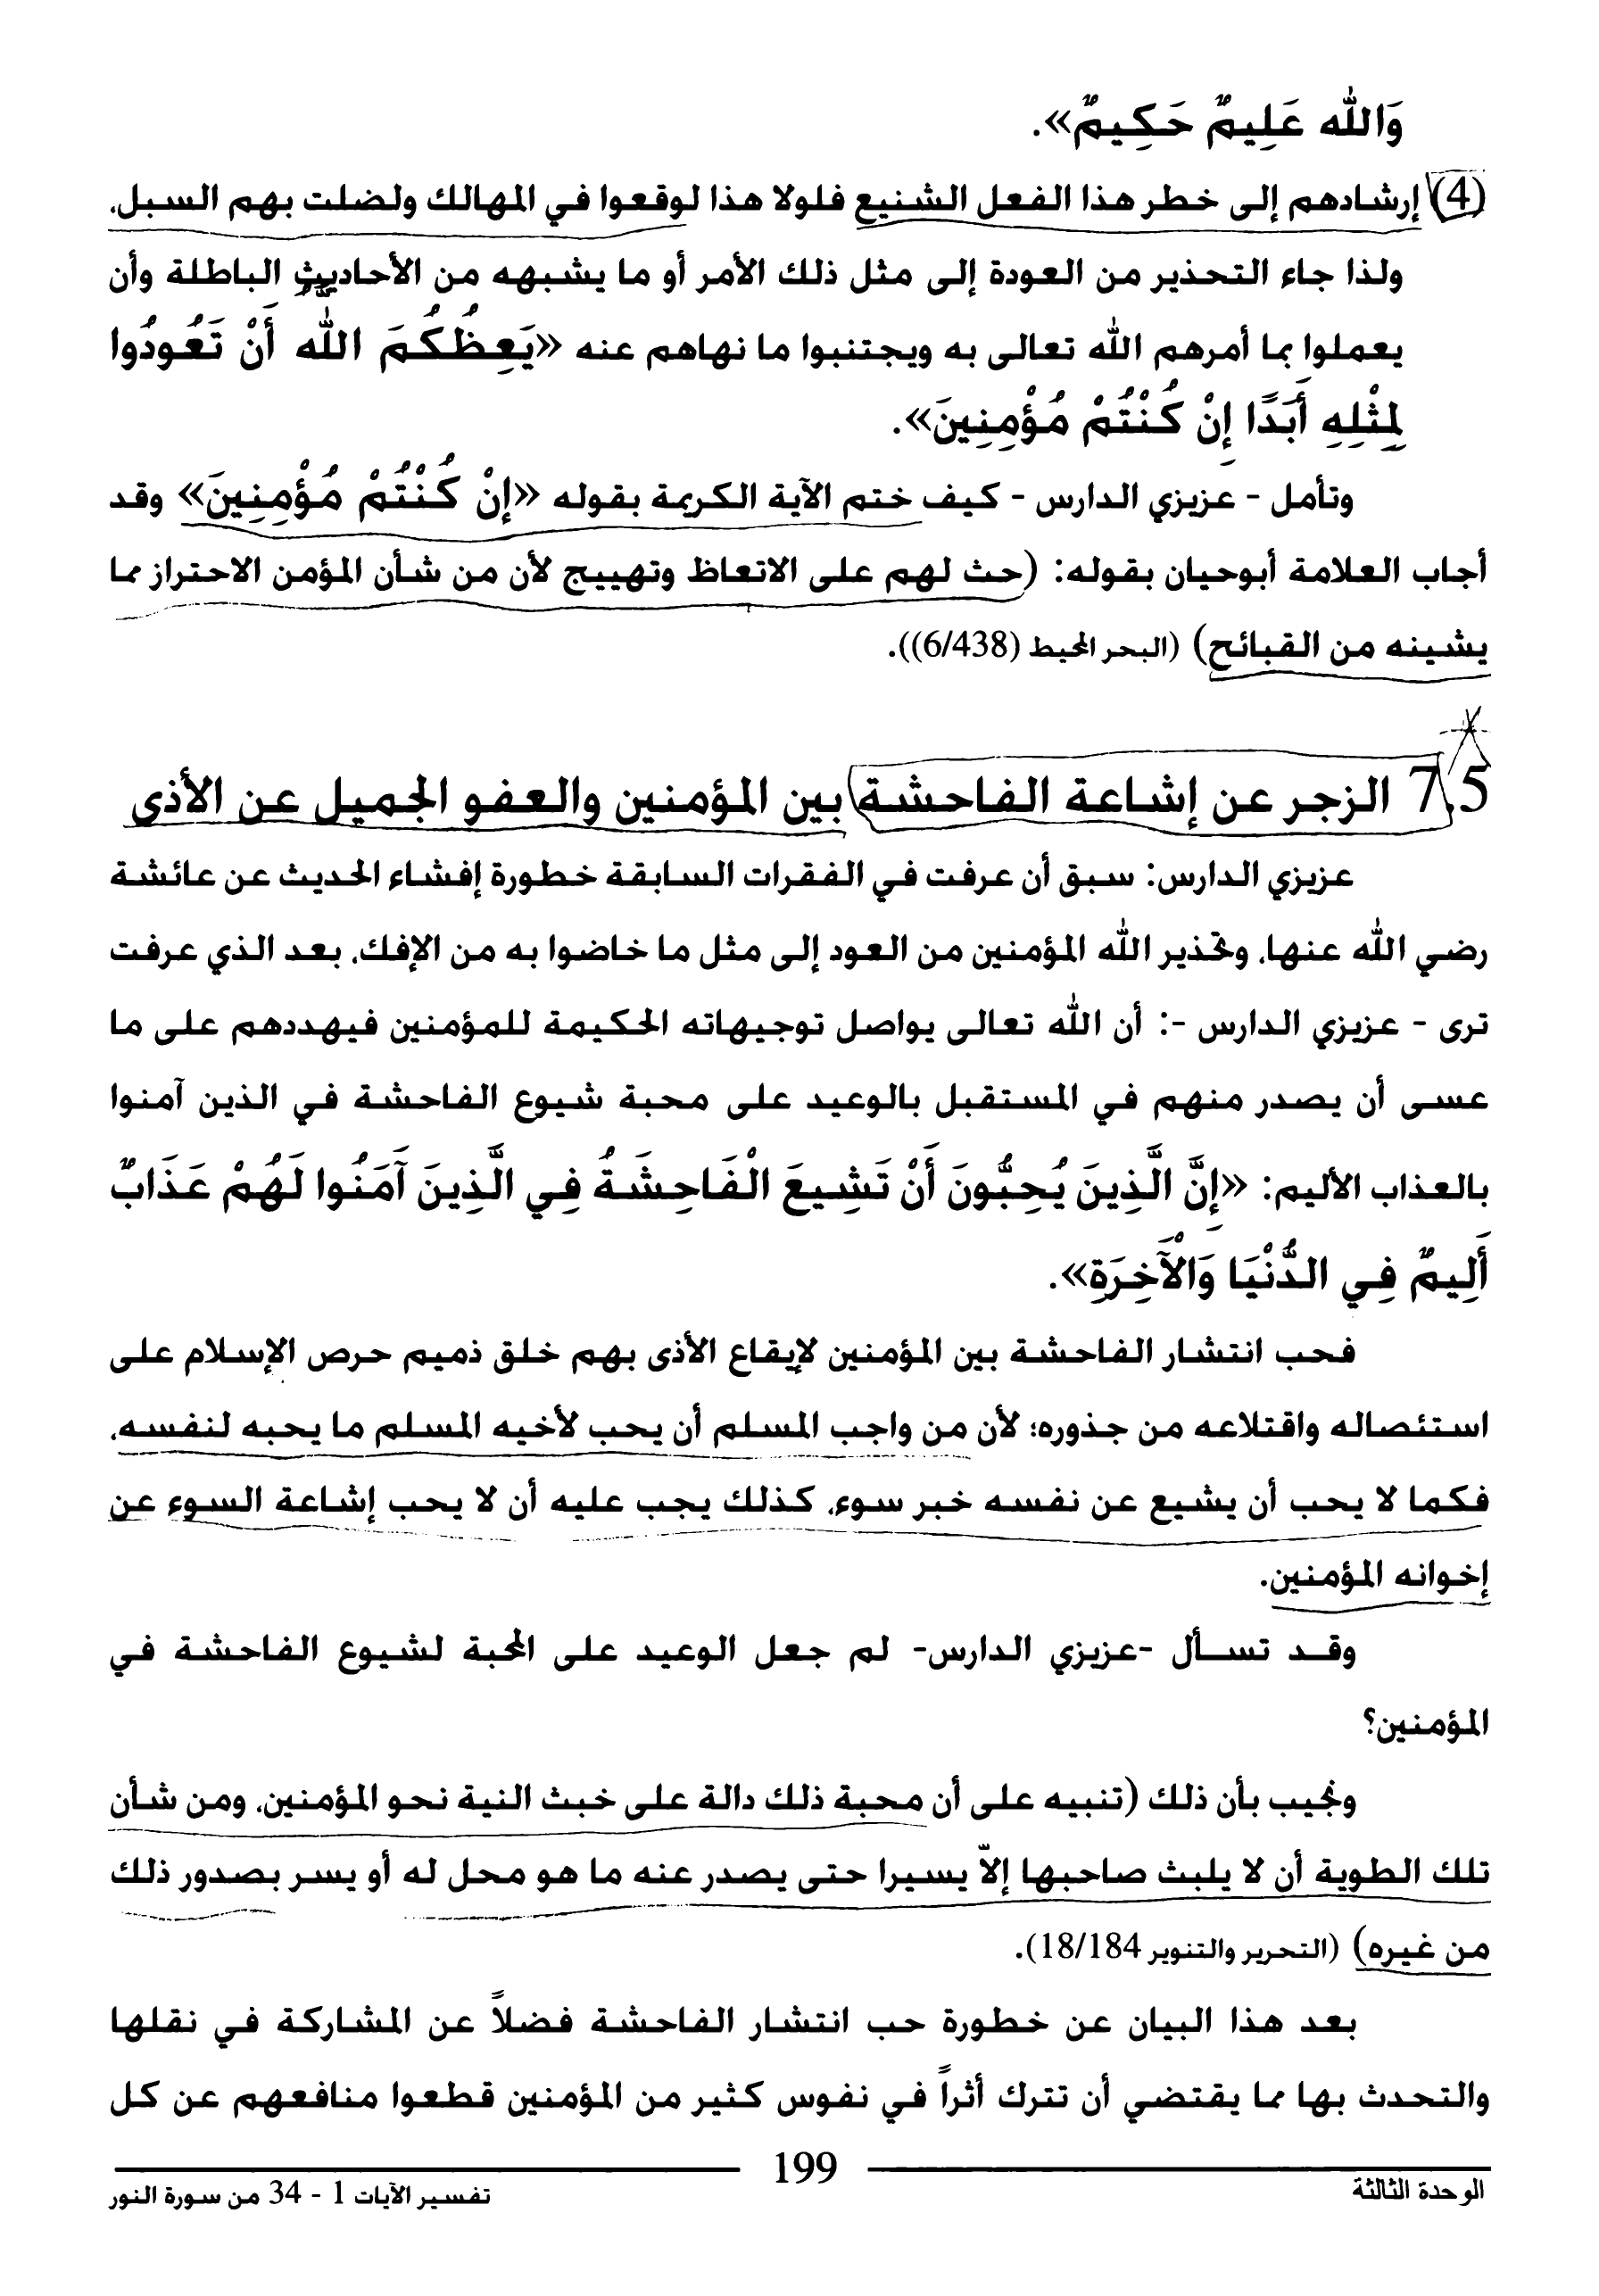 وَالله عَلِيمٌ حَكِيمٌ».
(4) إرشادهم إلى خطر هذا الفعل الشنيع فلولا هذا لوقعوا في المهالك ولضلت بهم السبل،
ولذا جاء التحذير من العودة إلى مثل ذلك الأمر أو ما يشبهه من الأحاديث الباطلة وأن
يعملوا بما أمرهم الله تعالى به ويجتنبوا ما نهاهم عنه «يَعِظُكُمَ الله أَنْ تَعُودُوا
لِمثْلِهِ أَبَدًا إِنْ كُنْتُمْ مُؤْمِنِينَ».
وتأمل - عزيزي الدارس - كيف ختم الآية الكريمة بقوله «إِنْ كُنْتُمْ مُؤْمِنِينَ» وقد
أجاب العلامة أبوحيان بقوله: (حث لهم على الاتعاظ وتهييج لأن من شأن المؤمن الاحتراز مما
يشينه من القبائح) (البحر المحيط (6/438)).
7.5 الزجر عن إشاعة الفاحشة بين المؤمنين والعفو الجميل عن الأذى
عزيزي الدارس: سبق أن عرفت في الفقرات السابقة خطورة إفشاء الحديث عن عائشة
رضي الله عنها، وتحذير الله المؤمنين من العود إلى مثل ما خاضوا به من الإفك، بعد الذي عرفت
ترى - عزيزي الدارس -: أن الله تعالى يواصل توجيهاته الحكيمة للمؤمنين فيهددهم على ما
عسى أن يصدر منهم في المستقبل بالوعيد على محبة شيوع الفاحشة في الذين آمنوا
بالعذاب الأليم: «إِنَّ الَّذِينَ يُحِبُّونَ أَنْ تَشِيعَ الْفَاحِشَةُ فِي الَّذِينَ آَمَنُوا لَهُمْ عَذَابٌ
أَلِيمٌ فِي الدُّنْيَا وَالْآَخِرَةِ».
فحب انتشار الفاحشة بين المؤمنين لإيقاع الأذى بهم خلق ذميم حرص الإسلام على
استئصاله واقتلاعه من جذوره؛ لأن من واجب المسلم أن يحب لأخيه المسلم ما يحبه لنفسه،
فكما لا يحب أن يشيع عن نفسه خبر سوء، كذلك يجب عليه أن لا يحب إشاعة السوء عن
إخوانه المؤمنين.
وقد تسأل -عزيزي الدارس- لم جعل الوعيد على المحبة لشيوع الفاحشة في
المؤمنين؟
ونجيب بأن ذلك (تنبيه على أن محبة ذلك دالة على خبث النية نحو المؤمنين، ومن شأن
تلك الطوية أن لا يلبث صاحبها إلاّ يسيرا حتى يصدر عنه ما هو محل له أو يسر بصدور ذلك
من غيره) (التحرير والتنوير 18/184).
بعد هذا البيان عن خطورة حب انتشار الفاحشة فضلاً عن المشاركة في نقلها
والتحدث بها مما يقتضي أن تترك أثراً في نفوس كثير من المؤمنين قطعوا منافعهم عن كل
199
الوحدة الثالثة
تفسير الآيات 1 - 34 من سورة النور